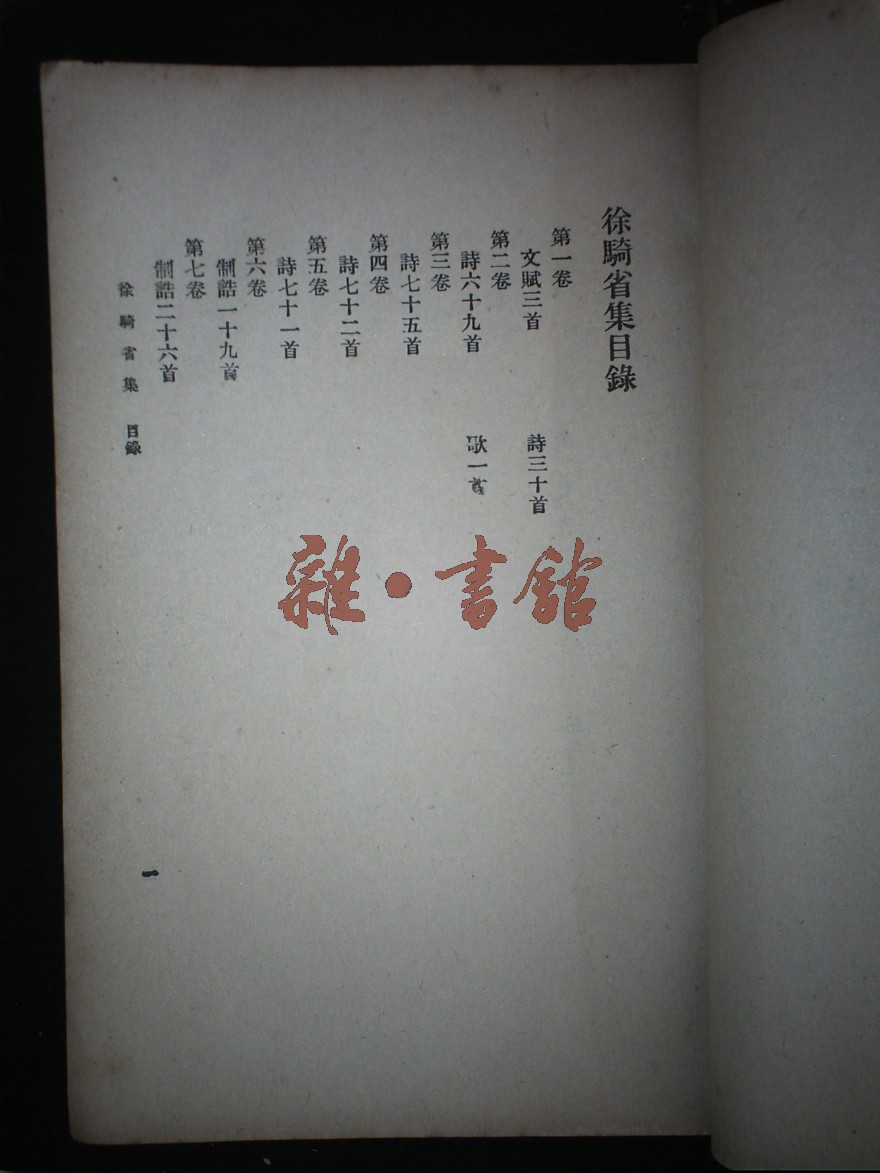 徐騎省集目錄
第一卷
文賦三首 詩三十首
第二卷
詩六十九首 歌一首
第三卷
詩七十五首
第四卷
詩七十二首
第五卷
詩七十一首
第六卷
制誥一十九首
第七卷
制誥二十六首
徐騎省集 目錄
一
雜·書館